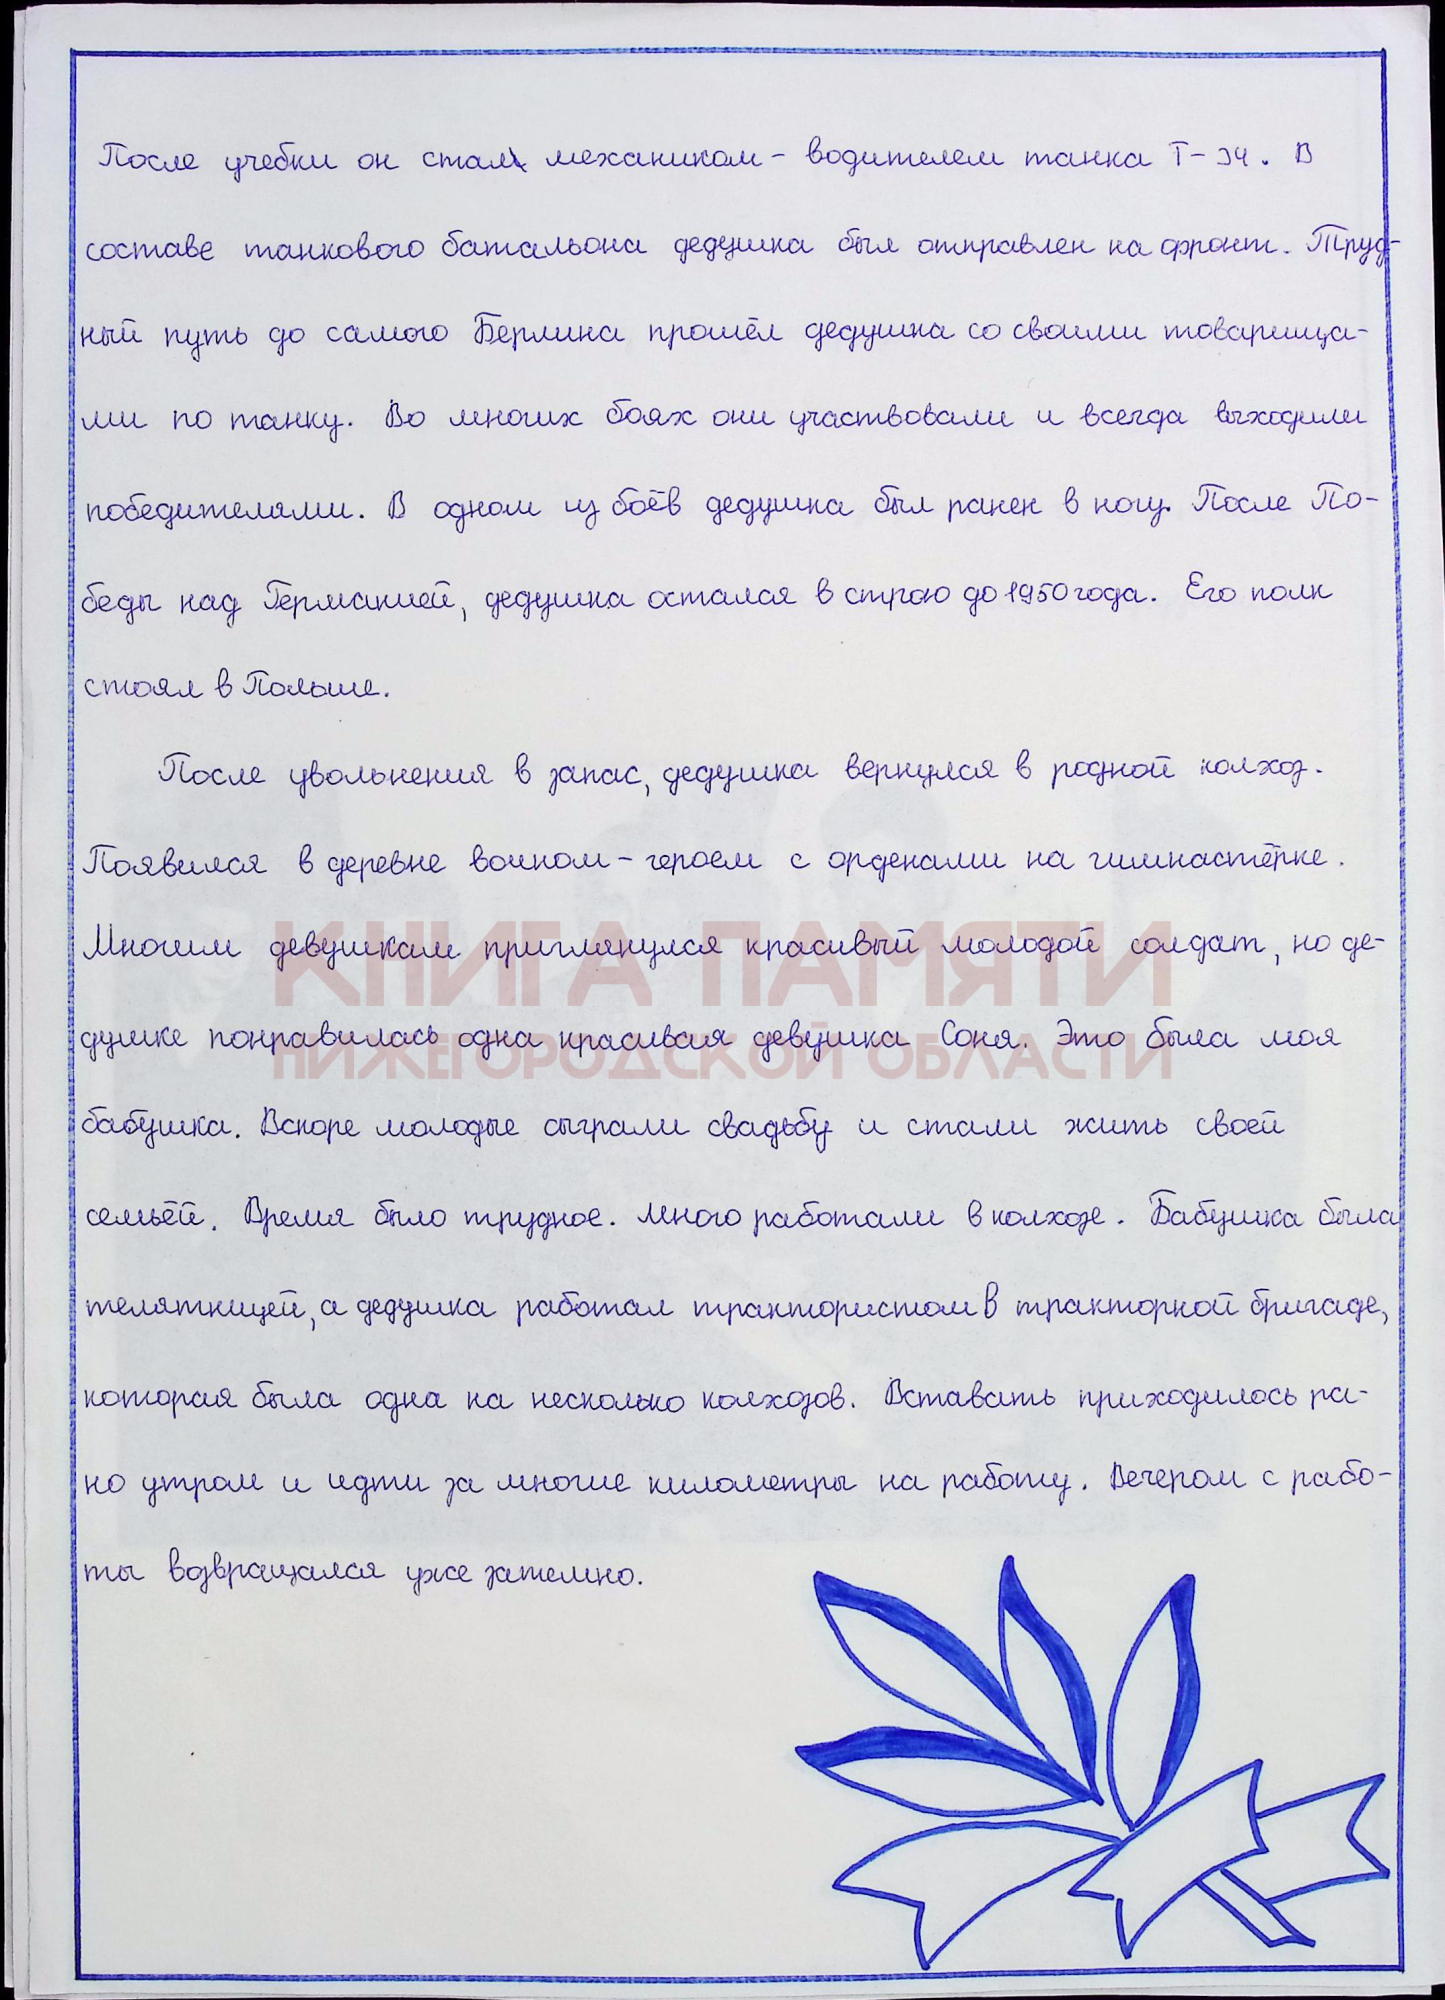 После учебки он стал механиком-водителем танка Т-34. В
составе танкового батальона дедушка был отправлен на фронт. Труд-
ный путь до самого Берлина прошёл дедушка со своими товарища-
ми по танку. Во многих боях они участвовали и всегда выходили
победителями. В одном из боёв дедушка был ранен в ногу. После По-
беды над Германией, дедушка остался в строю до 1950 года. Его полк
стоял в Польше.
После увольнения в запас, дедушка вернулся в родной колхоз.
Появился в деревне воином-героем с орденами на гимнастёрке.
Многим девушкам приглянулся красивый молодой солдат, но де-
КНИГА ПАМЯТИ
душке понравилась одна красивая девушка Соня. Это была моя
НИЖЕГОРОДСКОЙ ОБЛАСТИ
бабушка. Вскоре молодые сыграли свадьбу и стали жить своей
семьёй. Время было трудное. Много работали в колхозе. Бабушка была
телятницей, а дедушка работал трактористом в тракторной бригаде,
которая была одна на несколько колхозов. Вставать приходилось ра-
но утром и идти за многие километры на работу. Вечером с рабо-
ты возвращался уже затемно.